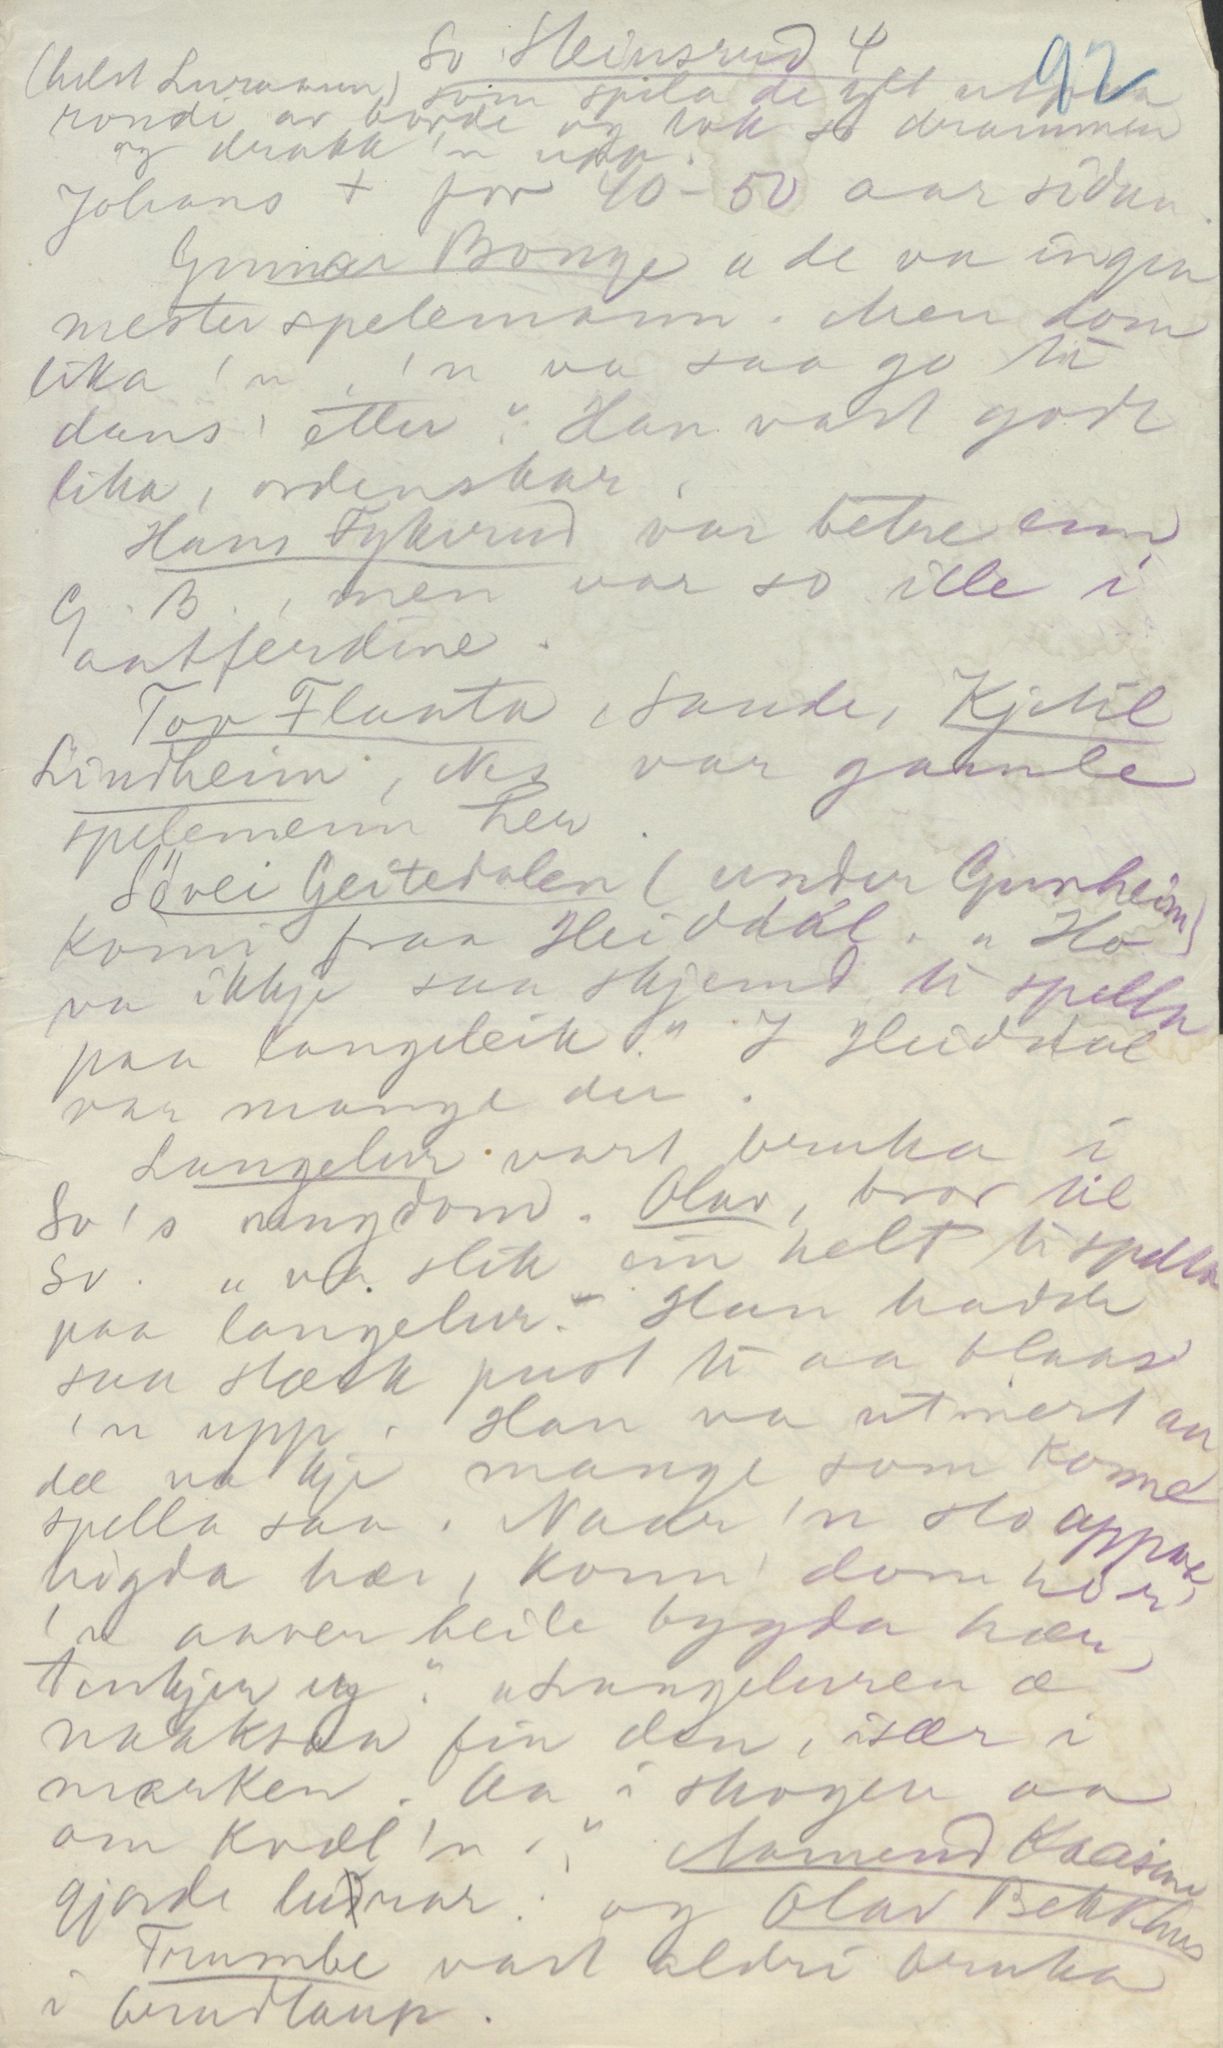 So Steinsrud 4
92
(helst Luraaen) som spila de ytst utpaa
rondi av borde og tok so drammen
og drakk 'n upp.
Johans + for 40-50 aar sidan.
Gunnar Bonge "de va ingen
mesterspelemann. Men dom
lika 'n, 'n va saa go ti
dans' etter". Han vart godt
lika, ordenskar.
Hans Fykerud var betre enn
G. B., men var so ille i
aatferdine.
Tov Flaata, Saude, Kjetil
Lindheim, Nes var gamle
spelemenn her.
Sövei Geitedalen (under Gurheim)
komi fraa Heiddal. "Ho
va ikkje saa skjemd ti spella
paa langeleik." I Heiddal
var mange der.
Langelur vart bruka i
So's ungdom. Olav, bror til
So. "va slik ein helt ti spella
paa langelur." Han hadde
saa stærk pust ti aa blaas'
'n upp. Han va utmert aa
dæ va kje mange som konne
spella saa. Naar 'n sto oppaa
högda hær, konn' dom höir'
'n aaver heile bygda hær,
tenkjer eg." "Langeluren æ
naaksaa fin den, især i
marken. Aa i skogen aa
om kvæl'n." Aamund Kaasine
gjorde lurar. og Olav Bekkhus
Trumbe vart aldri bruka
i brudlaup.